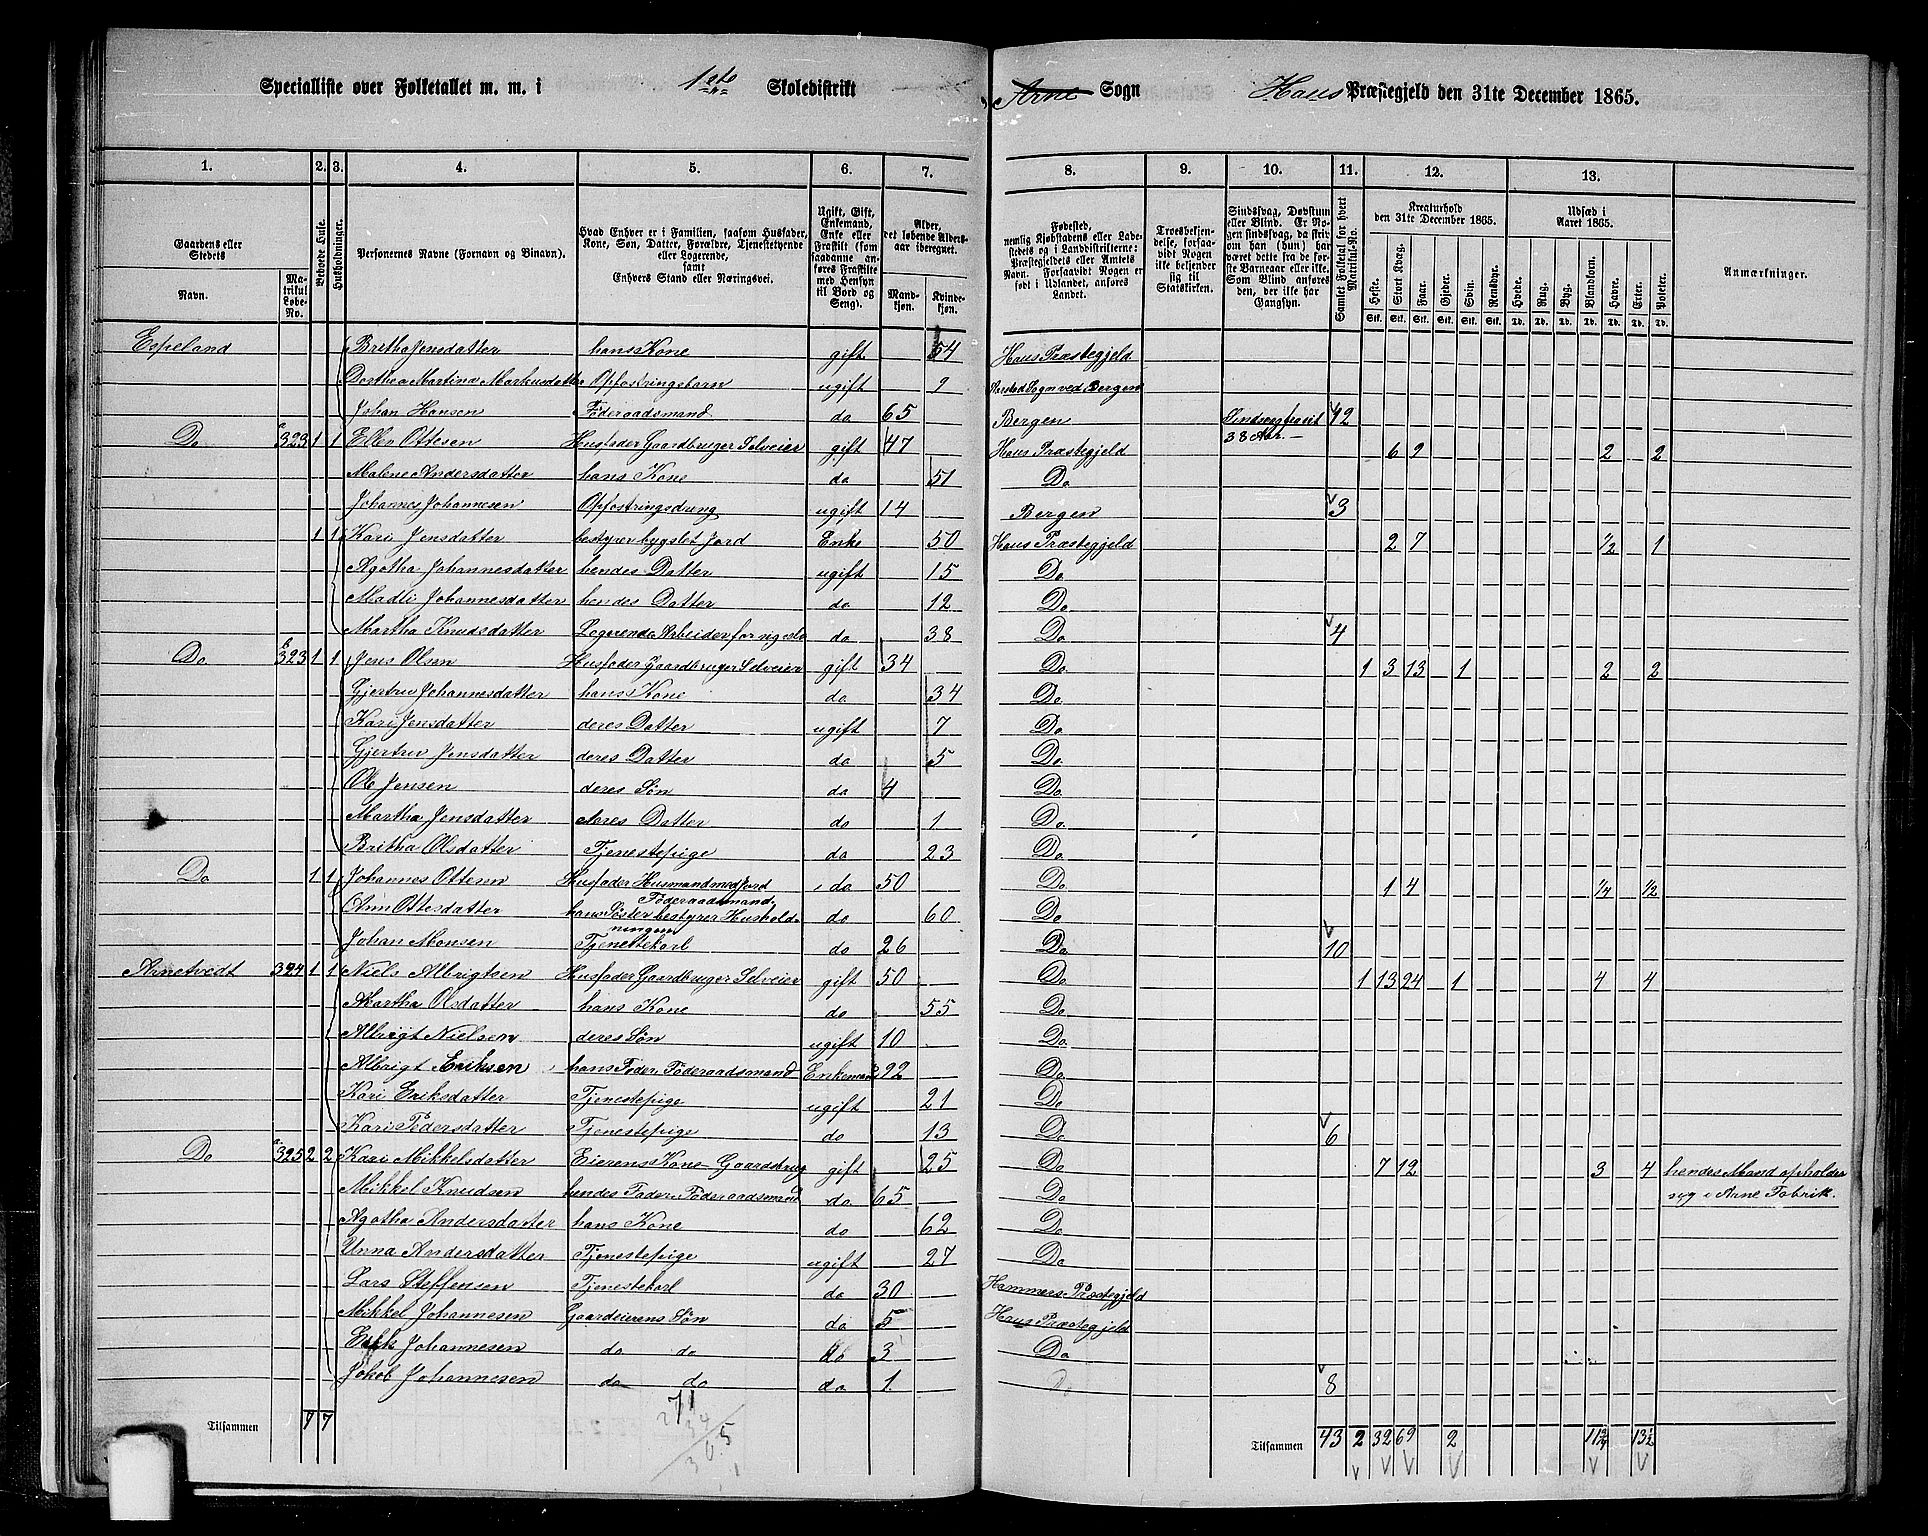 Specialliste over Folketallet m. m. i 1ste Skoledistrikt Arne Sogn Haus Præstegjeld den 31te December 1865.
1. 2. 3. 4. 5. 6. 7. 8. 9. 10. 11. 12. 13.
Gaardens eller Stedets Navn. Matrikul Løbe-No. Beboede Huse. Husholdninger. Personernes Navne (Fornavn og Binavn). Hvad Enhver er i Familien, saasom Husfader, Kone, Søn, Datter, Forældre, Tjenestetyende eller Logerende, samt Enhvers Stand eller Næringsvei. Ugift, Gift, Enkemand, Enke eller Fraskilt (som saadanne anføres Fraskilte med Hensyn til Bord og Seng). Alder, det løbende Aldersaar iberegnet. Mandkjøn. Kvindekjøn.
Fødested, nemlig Kjøbstadens eller Ladestedets og i Landdistrikterne: Præstegjeldets eller Amtets Navn. Forsaavidt Nogen er født i Udlandet, anføres Landet. Troesbekjendelse, forsaavidt Nogen ikke bekjender sig til Statskirken. Sindssvag, Døvstum eller Blind. Samlet Folketal for hvert Matrikul-No. Kreaturhold den 31te December 1865. Heste. Stort Kvæg. Faar. Gjeder. Svin. Rensdyr. Udsæd i Aaret 1865. Hvede. Rug. Byg. Blandkorn. Havre. Erter. Poteter. Anmærkninger.
Espeland Britha Jensdatter hans Kone gift 54 Haus Præstegjeld
Dorthea Martina Markusdatter Opfostringsbarn ugift 9 Aarstad Sogn ved Bergen
Johan Hansen Føderaadsmand do 65 Bergen 12
Do 323 1 1 Ottesen Husfader Gaardbruger Selveier gift 47 38 Aar. Haus Præstegjeld 6 9 2 2
Malene Andersdatter hans Kone do 51 Do
Johannes Johannesen Opfostringsdreng ugift 14 Bergen 3
1 1 Kari Jensdatter bestyrer bygslet Jord Enke 50 Haus Præstegjeld 2 7 1/2 1
Agotha Johannesdatter hendes Datter ugift 15 Do
Madli Johannesdatter hendes Datter do 12 Do
Martha Knudsdatter Logerende Arbeider for do 38 Do 4
Do 323 1 1 Jens Olsen Husfader Gaardbruger Selveier gift 34 Do 1 3 13 1 2 2
Gjertru Johannesdatter hans Kone do 34 Do
Kari Jensdatter deres Datter ugift 7 Do
Gjertru Jensdatter deres Datter do 5 Do
Ole Jensen deres Søn do 4 Do
Martha Jensdatter deres Datter do 1 Do
Britha Olsdatter Tjenestepige do 23 Do
Do 1 1 Johannes Ottesen Husfader Husmand med Jord Føderaadsmand do 50 Do 1 4 1/4 1/2
Ann Ottesdatter hans Søster bestyrer Husholdningen do 60 Do
Johan Monsen Tjenestekarl do 26 Do 10
Arnetvedt 324 1 1 Niels Albrigtsen Husfader Gaardbruger Selveier gift 50 Do 1 13 24 1 4 4
Martha Olsdatter hans Kone do 55 Do
Albrigt Nielsen deres Søn ugift 10 Do
Albrigt Eriksen hans Fader, Føderaadsmand Enkemand 92 Do
Kari Eriksdatter Tjenestepige ugift 21 Do
Kari Pedersdatter Tjenestepige do 13 Do 6
Do 325 2 2 Kari Mikkelsdatter Eierens Kone - Gaardsbrug gift 25 Do 7 12 3 4 hendes Mand opholder
Mikkel Knudsen hendes Fader Føderaadsmand do 65 Do sig i Arne Fabrik.
Agotha Andersdatter hans Kone do 62 Do
Unna Andersdatter Tjenestepige ugift 27 Do
Lars Steffensen Tjenestekarl do 30 Hammers Præstegjeld
Mikkel Johannesen Gaardeierens Søn do 5 Haus Præstegjeld
Erik Johannesen do do do 3 Do
Jakob Johannesen do do do 1 Do 8
Tilsammen 7 7 Tilsammen 43 2 32 69 2 11 3/4 13 1/2